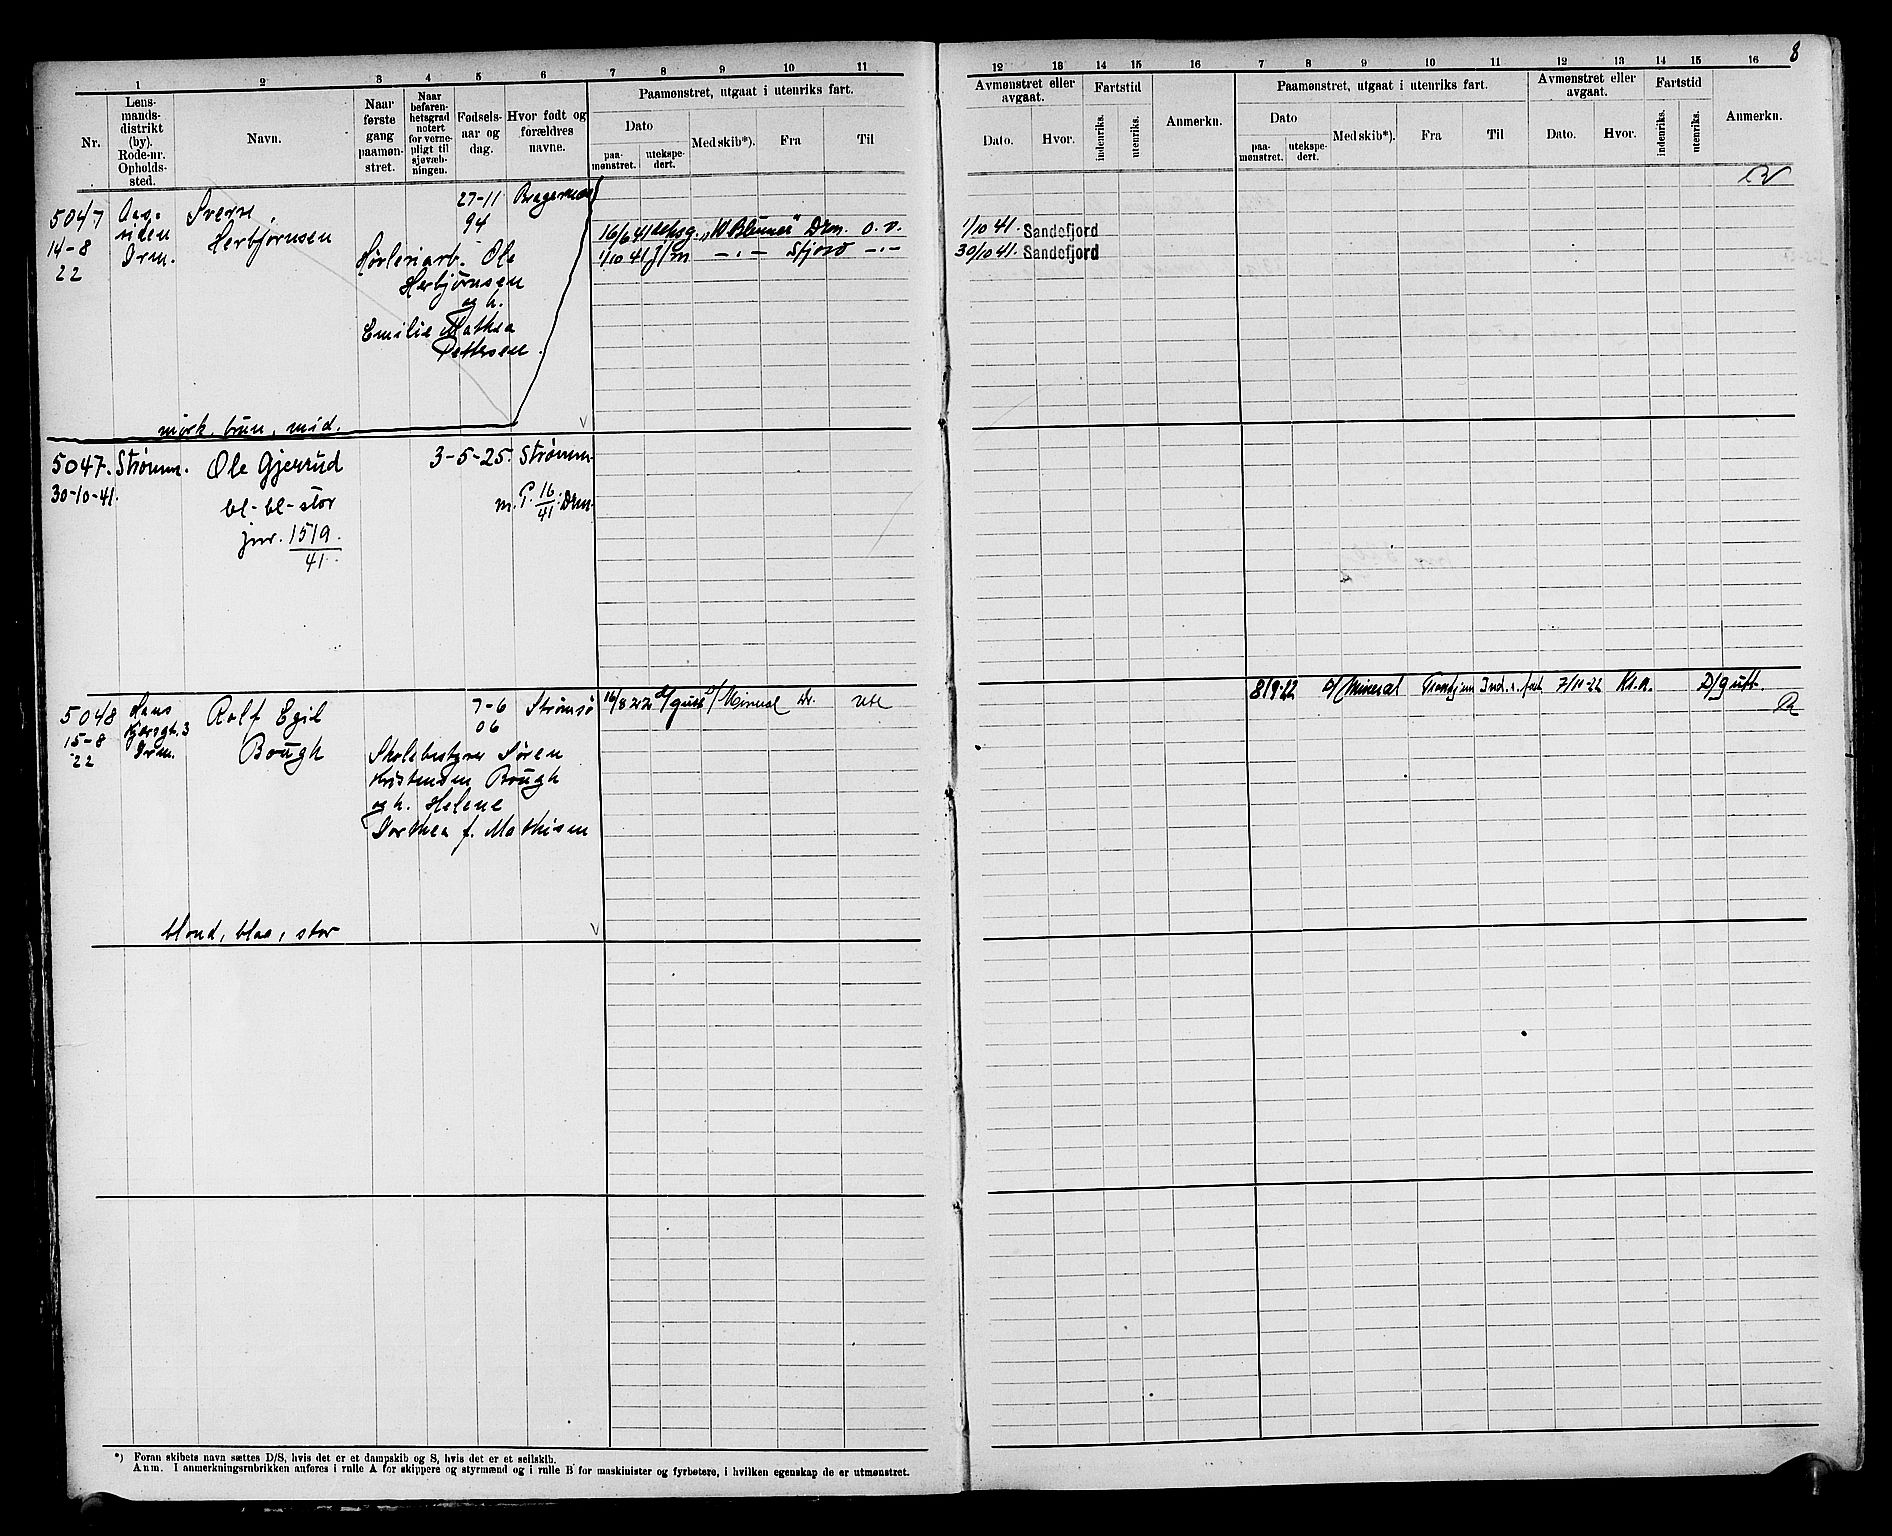 8
1 2 3 4 5 6 7 8 9 10 11
Nr.
Lens-
mands-
distrikt
(by).
Rode-nr.
Opholds-
sted.
Navn.
Naar
første
gang
paamøn-
stret.
Naar
befaren-
hetsgrad
notert
for verne-
pligt til
sjøvæb-
ningen.
Fødsels-
aar og
dag.
Hvor født og
forældres
navne.
Paamønstret, utgaat i utenriks fart.
Dato
paa-
mønstret.
utekspe-
dert.
Med skib*).
Fra
Til
12 13 14 15 16 7 8 9 10 11 12 13 14 15 16
Avmønstret eller
avgaat.
Dato.
Hvor.
Fartstid
indenriks.
utenriks.
Anmerkn.
Paamønstret, utgaat i utenriks fart.
Dato
paa-
mønstret.
utekspe-
dert.
Med skib*).
Fra
Til
Avmønstret eller
avgaat.
Dato.
Hvor.
Fartstid
indenriks.
utenriks.
Anmerkn.
5047
14-8
22
Aas-
siden
Drm.
Sverre
Herbjørnsen
27-11
94
Bragernes
Ole
Herbjørnsen
og h.
Emilie Mathea
Pettersen.
mørk, brun, mid.
16/6 41 Drm. o. v.
1/10 41 j/m — . — Sfjord — . —
1/10 41. Sandefjord
30/10 41. Sandefjord
5047. Strømm. Ole Gjerrud 3-5-25. Strømm.
30-10-41.
bl- bl- stor
m. P. 16/41 Drm.
jnr. 1519.
41.
5048
15-8
22
Hans
Drm.
Rolf Egil
Bough
7-6
06
Strømsø
Skolebestyrer Søren
Kristensen Bough
og h. Helene
Dorthea f. Mathisen
blond, blaa, stor
16/8 22 d/gutt D/ Mineral Dr. ute
8/9-22 D/ Mineral Trondhjem Ind. s. fart 7/11-22 Kl.a. D/gutt.
*) Foran skibets navn sættes D/S, hvis det er et dampskib og S, hvis det er et seilskib.
Anm. I anmerkningsrubrikken anføres i rulle A for skippere og styrmænd og i rulle B for maskinister og fyrbøtere, i hvilken egenskap de er utmønstret.